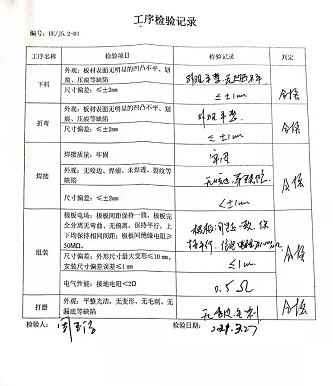 工序检验记录
编号：HE/J5.2-01
工序名称 检验项目 检验记录 判定
下料
外观：板材表面无明显的凹凸不平、划
痕、压痕等缺陷
外观平整，无凹凸不平
尺寸偏差：≤±2mm
≤±1mm
合格
折弯
外观：板材表面无明显的凹凸不平、划
痕、压痕等缺陷
外观平整
尺寸偏差：≤±2mm
≤±1mm
合格
焊接
焊接质量：牢固
牢固
外观：无咬边、焊瘤、未焊透、裂纹等
缺陷
无咬边
尺寸偏差：≤±2mm
≤±1mm
合格
组装
极板电场：极板间距保持一致，极板完
全分离无弯曲、无偏离，保持平行，上
下均保持相同间距；极板间绝缘电阻≥
50MΩ。
极板间距一致，保
持平行，绝缘电阻
尺寸偏差：外形尺寸最大变形≤10mm，
安装尺寸偏差误差≤1mm
≤1mm
电气性能：接地电阻<2Ω
0.5Ω
合格
打磨
外观：平整光洁，无变形、无毛刺、无
漏底等缺陷
无变形，毛刺
合格
检验人：
检验日期：